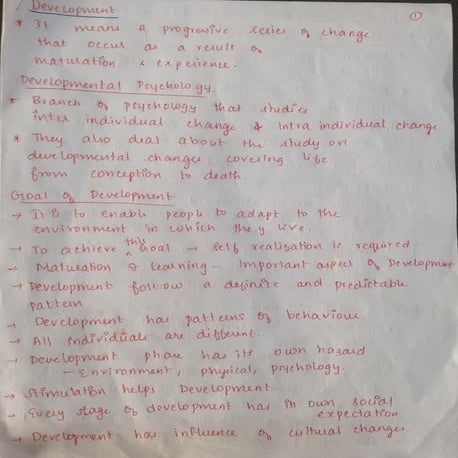 Development
①
* It means a progressive series of change
that occurs as a result of
maturation & experience.
Developmental Psychology.
* Branch of psychology that studies
inter individual change & Intra individual change
* They also deal about the study on
developmental changes covering life
from conception to death.
Goal of Development
→ It is to enable people to adapt to the
environment in which they live.
→ To achieve this Goal → self realization is required.
→ Maturation & Learning - Important aspect of Development
→ Development follow a definite and predictable
pattern
→ Development has patterns of behaviour
→ All individuals are different.
→ Development phase has its own hazard
- Environment, physical, psychology.
→ Stimulation helps Development
→ Every stage of development has its own social
expectation.
→ Development has influence of cultural changes